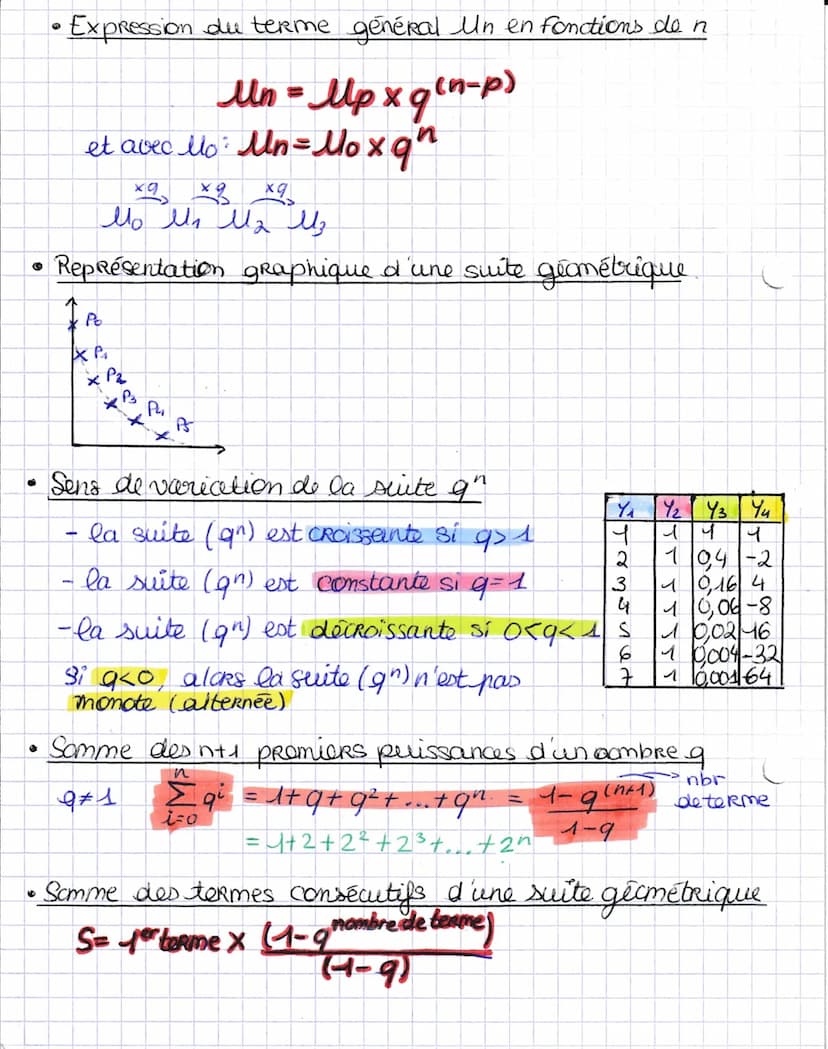 • Expression du terme général Un en fonctions de n
Un = Up x q^(n-p)
et avec U₀ : Un = U₀ x q^n
xq xq xq
U₀ U₁ U₂ U₃
• Représentation graphique d'une suite géométrique
P₀
P₁
P₂
P₃
P₄
P₅
• Sens de variation de la suite q^n
- la suite (q^n) est croissante si q>1
- la suite (q^n) est constante si q=1
- la suite (q^n) est décroissante si 0<q<1
si q<0, alors la suite (q^n) n'est pas
monote (alternée)
Y₁ Y₂ Y₃ Y₄
1 1 1 1
2 1 0,4 -2
3 1 0,16 4
4 1 0,06 -8
5 1 0,02 16
6 1 0,004 -32
7 1 0,001 64
• Somme des n+1 premiers puissances d'un nombre q
q≠1 ∑_{i=0}^{n} q^i = 1+q+q²+...+q^n = (1-q^(n+1))/(1-q) → nbr de terme
= 1+2+2²+2³+...+2^n
• Somme des termes consécutifs d'une suite géométrique
S= 1er terme x (1-q^nombre de terme)/(1-q)